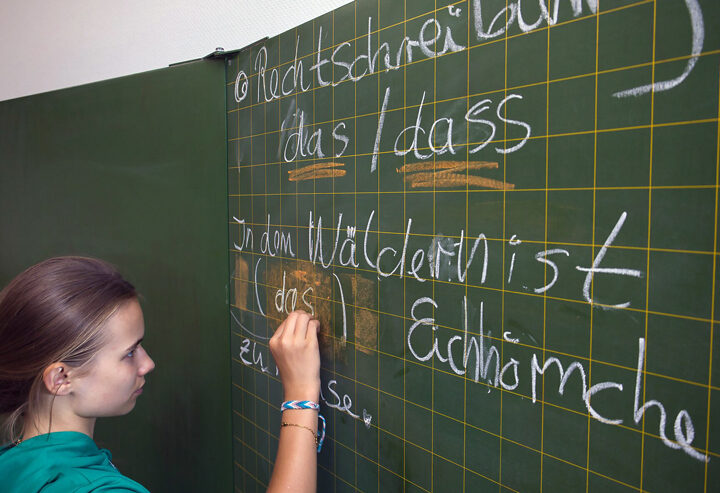 Rechtschreibung
das / dass
In dem Wäldern ist
(das) Eichhörnche
zu